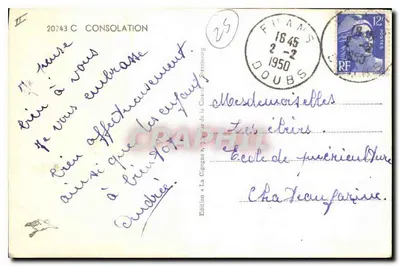 II
20743 C CONSOLATION
25
FUANS
16 45
2 - 2
1950
DOUBS
12F
POSTES
RF
Je pense
bien à vous
Je vous embrasse
bien affectueusement
ainsi que les enfants
à bientôt
Andrée
Mesdemoiselles
École de puériculture
Chateaufarine
Edition « La Cigogne »